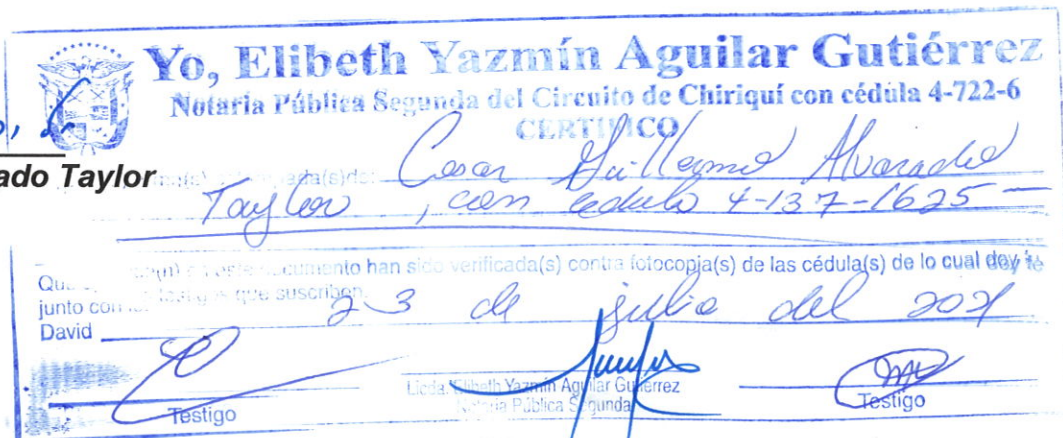 Yo, Elibeth Yazmín Aguilar Gutiérrez
Notaria Pública Segunda del Circuito de Chiriquí con cédula 4-722-6
CERTIFICO
ado Taylor
Cesar Guillermo Alvarado
Taylor, con cedula 4-137-1625
documento han sido verificada(s) contra fotocopia(s) de las cédula(s) de lo cual doy fe
junto con que suscriben.
David 23 de julio del 2021
Licda. Elibeth Yazmín Aguilar Gutiérrez
Notaria Pública Segunda
Testigo
Testigo